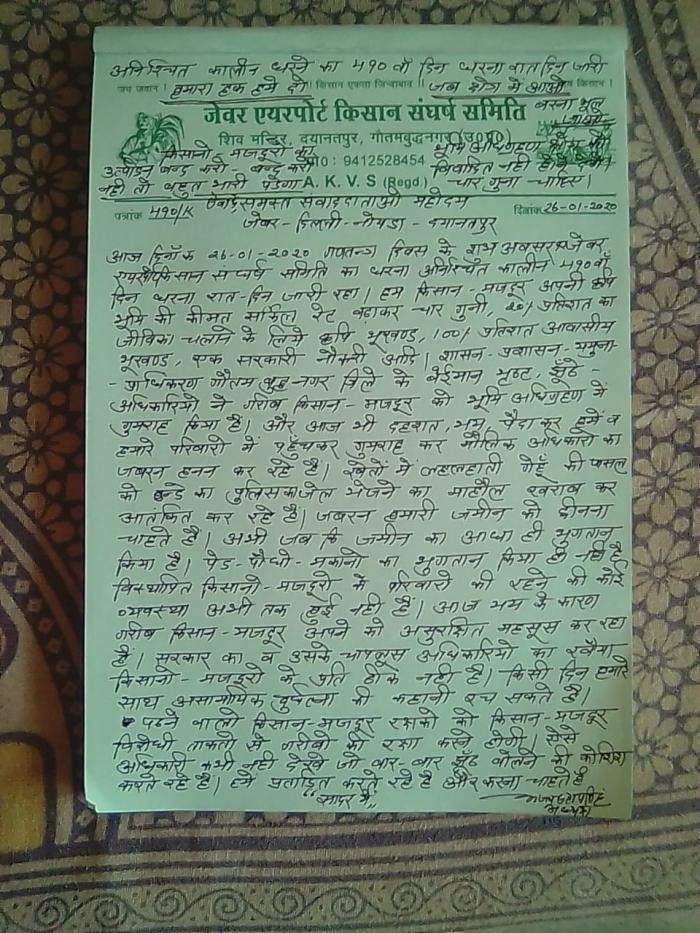 अनिश्चित कालीन धरने का 490 वाँ दिन धरना रात दिन जारी
जय जवान ! हमारा हक हमें दो । किसान एकता जिन्दाबाद । जब होश में आओ जय किसान !
जेवर एयरपोर्ट किसान संघर्ष समिति
वरना भूल जाओ
शिव मन्दिर, दयानतपुर, गौतमबुद्धनगर (उ0प्र0)
किसानो मजदूरों का
भूमि अधिग्रहण
उत्पीड़न बन्द करो - बन्द करो
मो0 : 9412528454
विवादित नही
नही तो बहुत भारी पडेगा
A. K. V. S (Regd.)
चार गुना चाहिए।
पत्रांक 490/K
समस्त संवाददाताओ महोदय
दिनांक 26-01-2020
जेवर - दिल्ली - नोयडा - दयानतपुर
आज दिनाँक 26-01-2020 गणतन्त्र दिवस के शुभ अवसर पर जेवर
एयरपोर्ट किसान संघर्ष समिति का धरना अनिश्चित कालीन 490वाँ
दिन धरना रात-दिन जारी रहा। हम किसान - मजदूर अपनी कृषि
भूमि की कीमत सर्किल रेट बढाकर चार गुनी, 20% प्रतिशत का
जीविका चलाने के लिये कृषि भूखण्ड, 100% प्रतिशत आवासीय
भूखण्ड, एक सरकारी नौकरी आदि। शासन - प्रशासन - यमुना-
- प्राधिकरण गौतम बुद्ध नगर जिले के बेईमान भृष्ट, झूंठे -
अधिकारियो ने गरीब किसान - मजदूर को भूमि अधिग्रहण में
गुमराह किया है। और आज भी दहशत, भय, पैदा कर हमें व
हमारे परिवारो में पहुँचकर गुमराह कर मौलिक अधिकारो का
जबरन हनन कर रहे है। खेतों में लहलहाती गेहूँ की फसल
को डन्डे का पुलिस का जेल भेजने का माहौल खराब कर
आतंकित कर रहे है। जबरन हमारी जमीन को छीनना
चाहते है। अभी जब कि जमीन का आधा ही भुगतान
किया है। पेड - पौधो - मकानो का भुगतान किया ही नही है
विस्थापित किसानो - मजदूरो के परिवारो की रहने की कोई
व्यवस्था अभी तक हुई नही है। आज भय के कारण
गरीब किसान - मजदूर अपने को असुरक्षित महसूस कर रहा
है। सरकार का व उसके चापलूस अधिकारियो का रवैया
किसानो - मजदूरो के प्रति ठीक नही है। किसी दिन हमारे
साथ असामायिक दुर्घटना की कहानी रच सकते है।
पढने वालो किसान-मजदूर रक्षको को किसान-मजदूर
विरोधी ताकतो से गरीबो की रक्षा करनी होगी। ऐसे
अधिकारी कभी नही देखे जो बार-बार झूँठ बोलने की कोशिश
करते रहे है। हमें प्रताड़ित करते रहे है और करना चाहते है
सादर में,,
अध्यक्ष